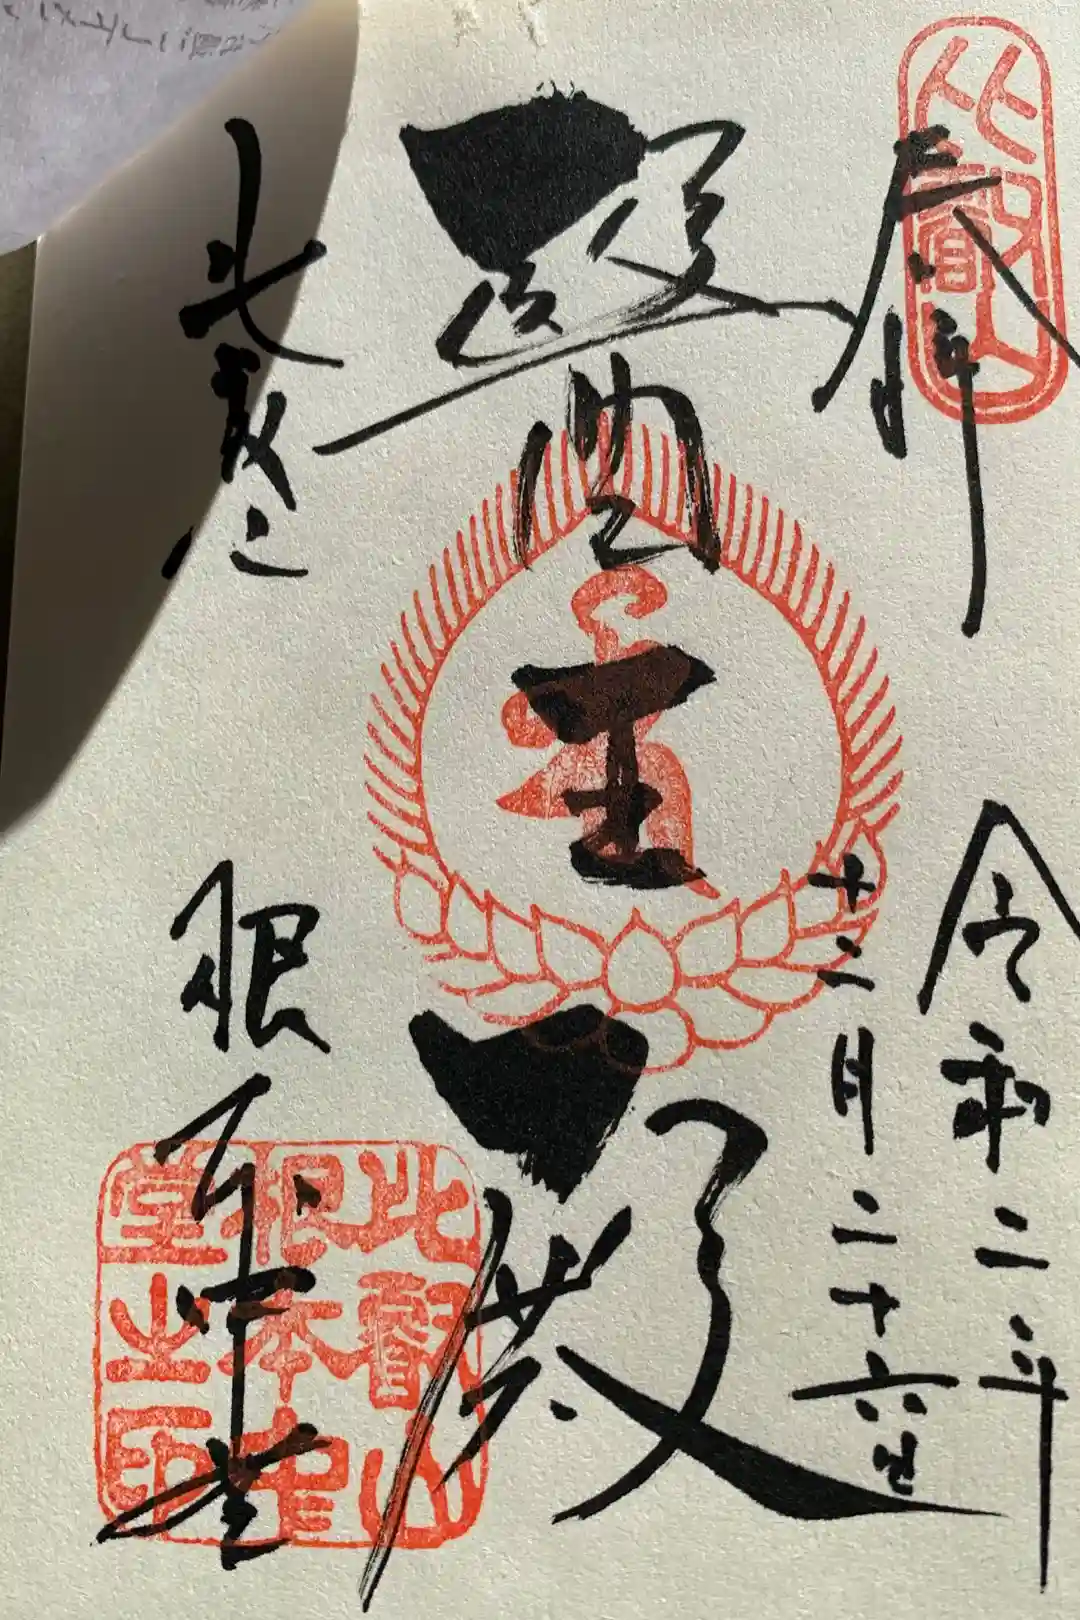 比叡山
奉拝
令和二年
十二月二十六日
醫王殿
比叡山
根本中堂
比叡山
根本中
堂之印